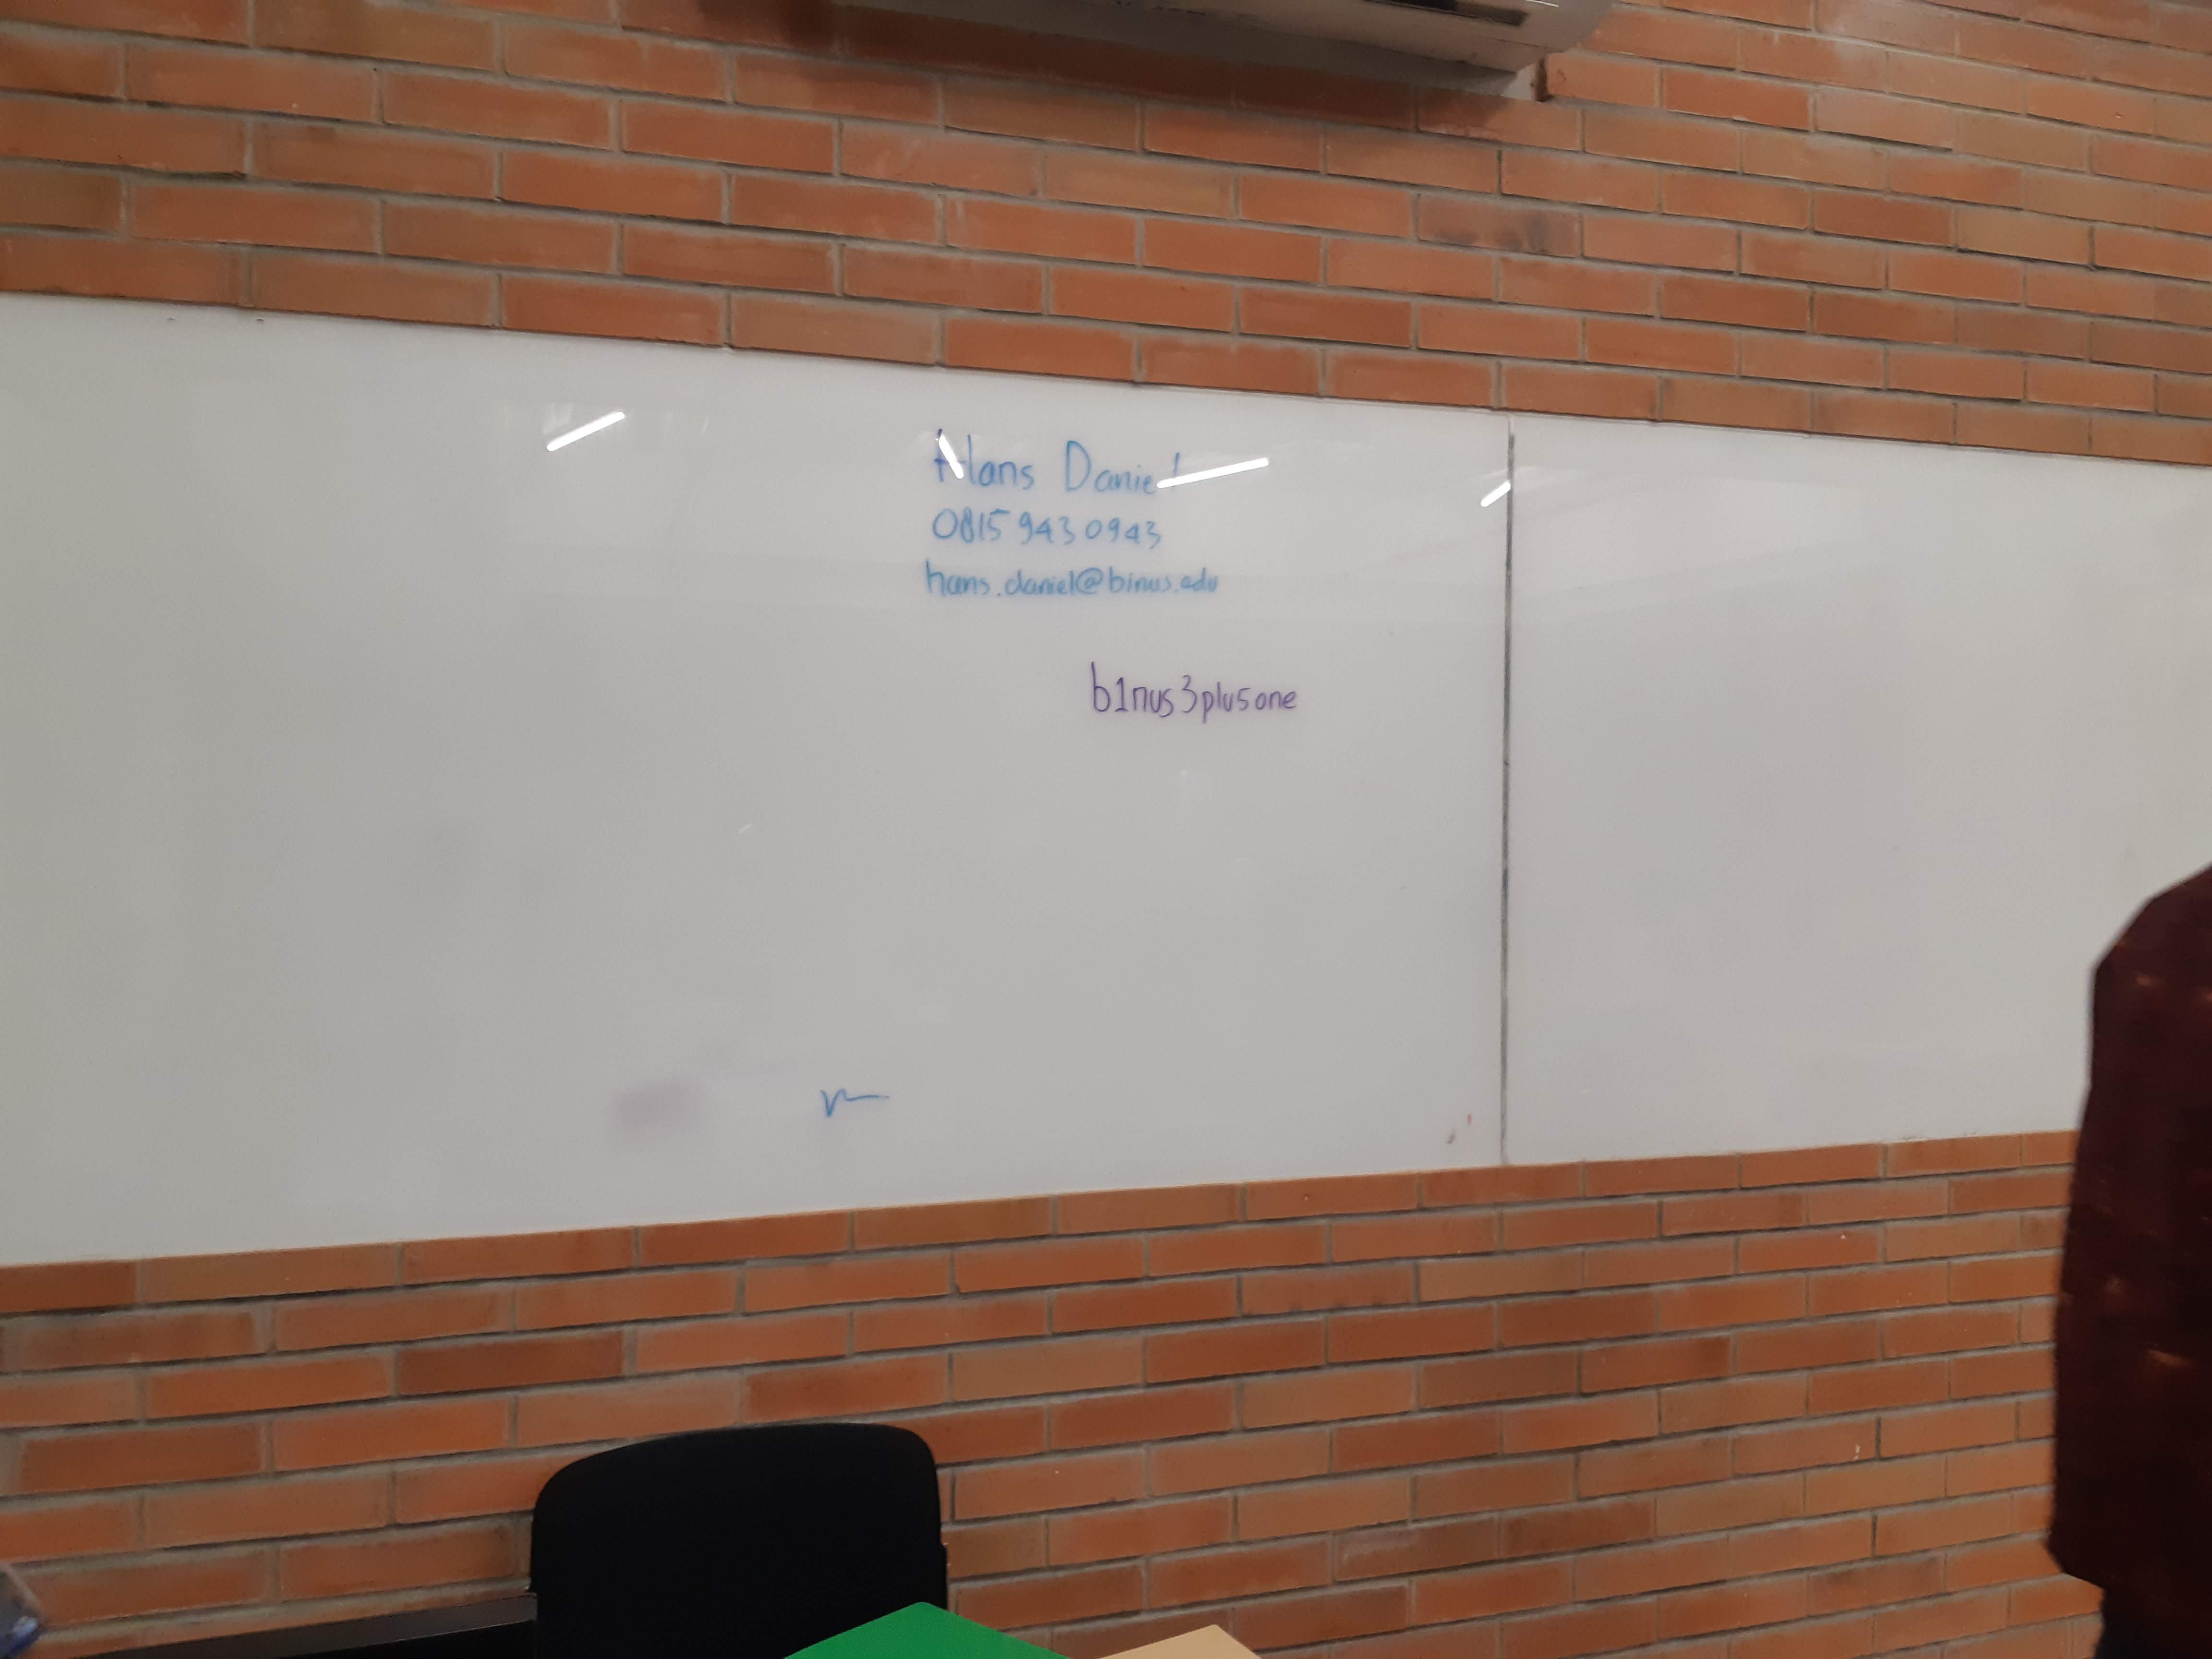 Hans Daniel
0815 943 0943
hans.daniel@binus.edu
b1nus3plusone